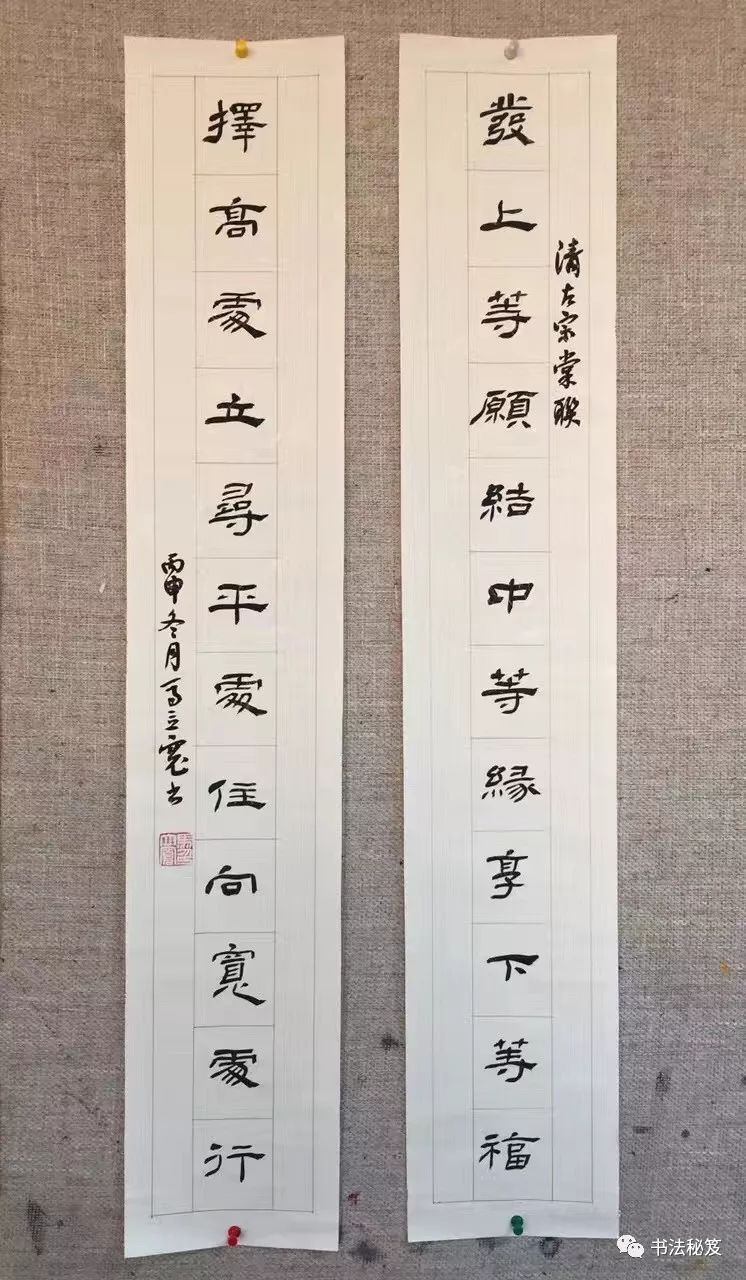 發上等願結中等緣享下等福
清左宗棠聯
擇高處立尋平處住向寬處行
丙申冬月馬立震書
书法秘笈